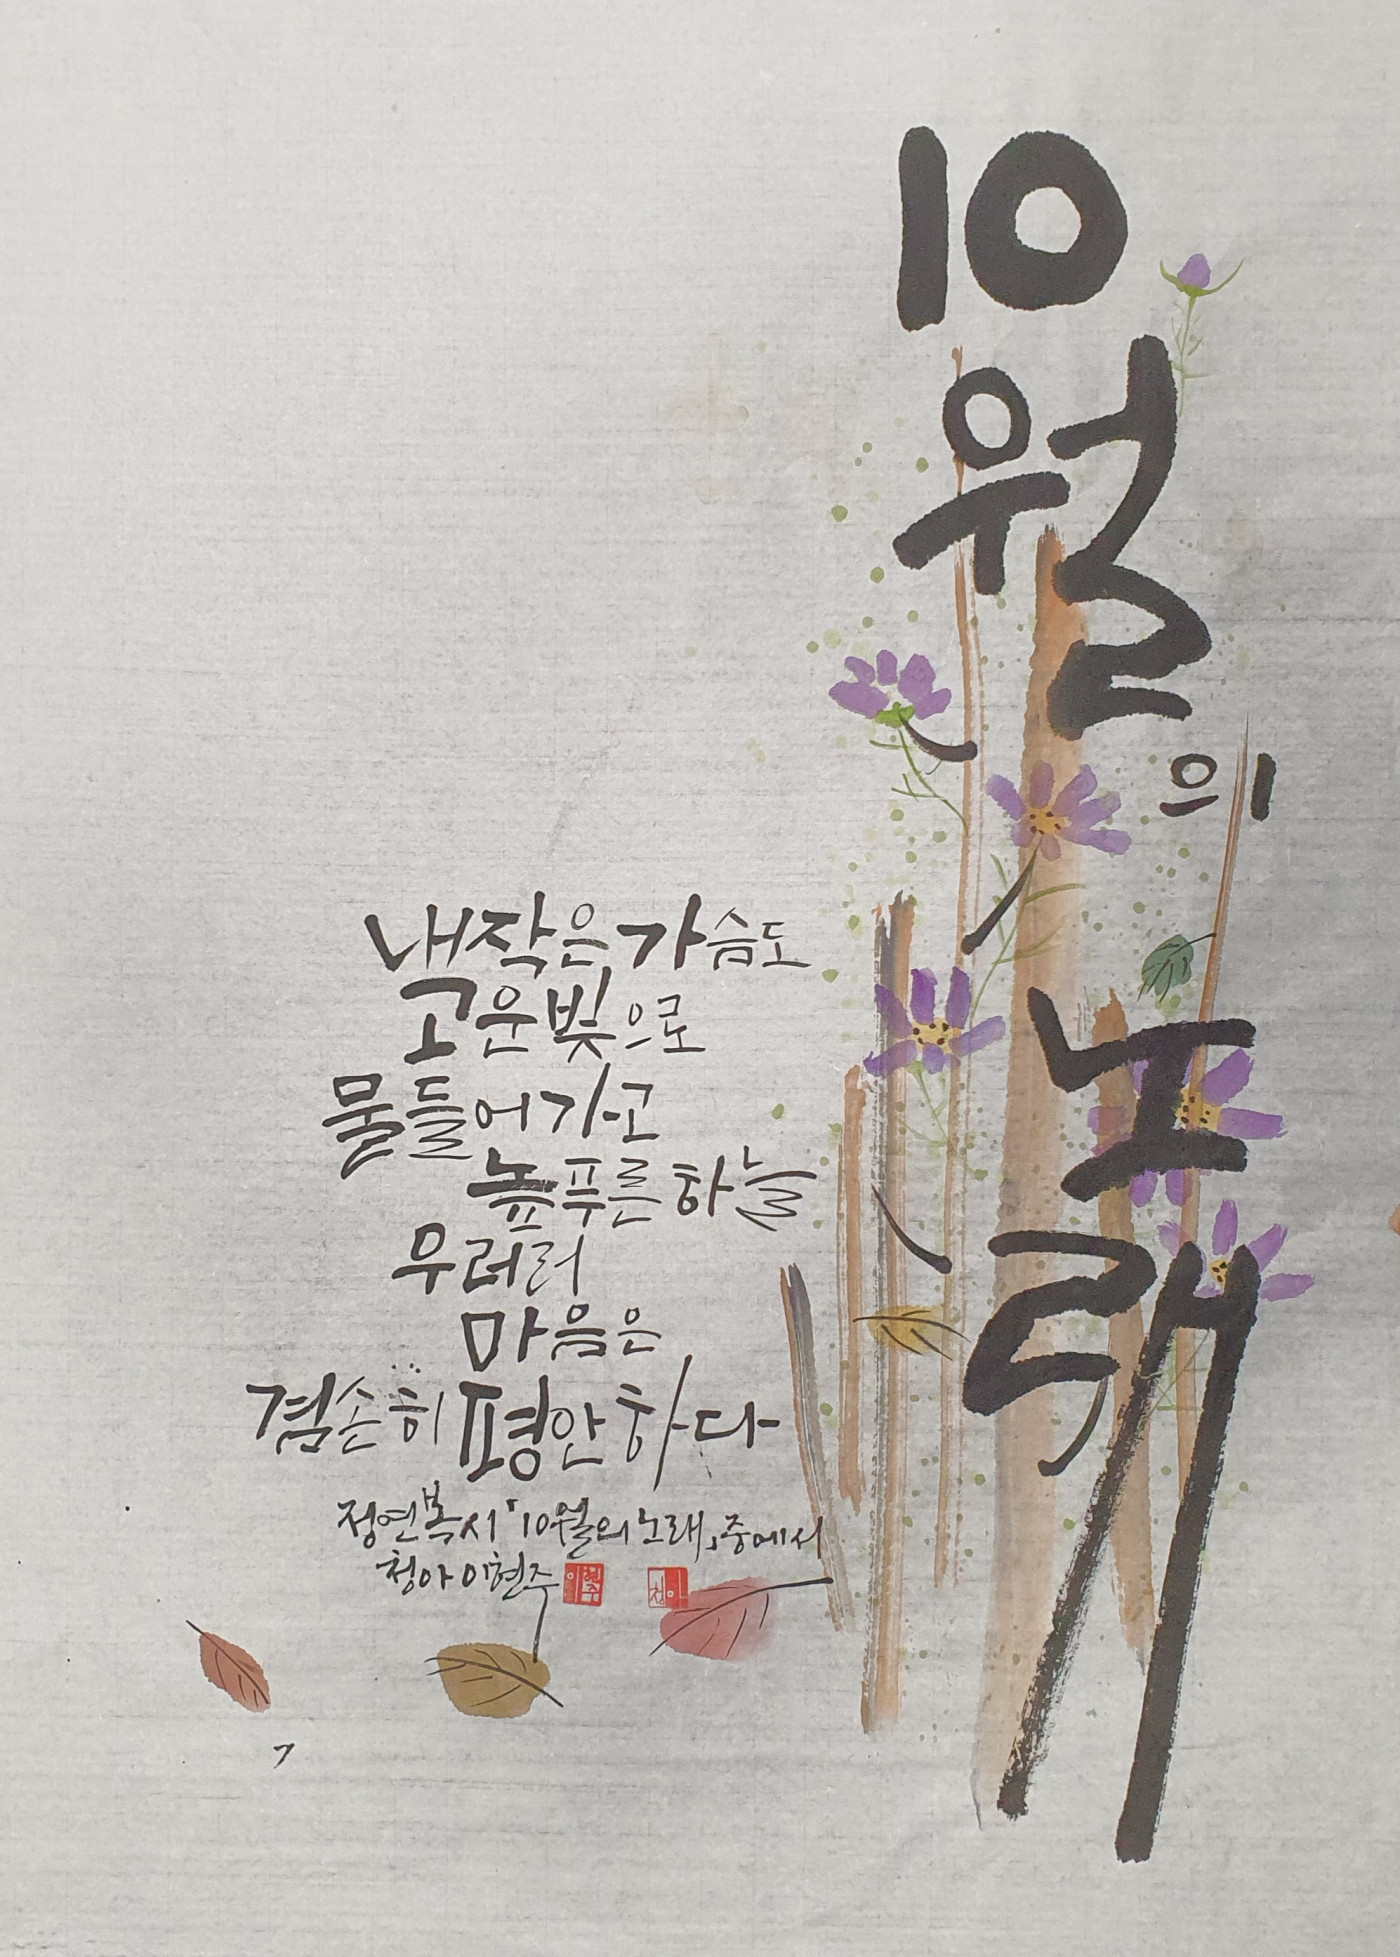 10
월
의
노
래
내 작은 가슴도
고운 빛으로
물들어가고
높푸른 하늘
우러러
마음은
겸손히 평안하다
정연복 시 「10월의 노래」 중에서
청아 이현주
이현주
청아